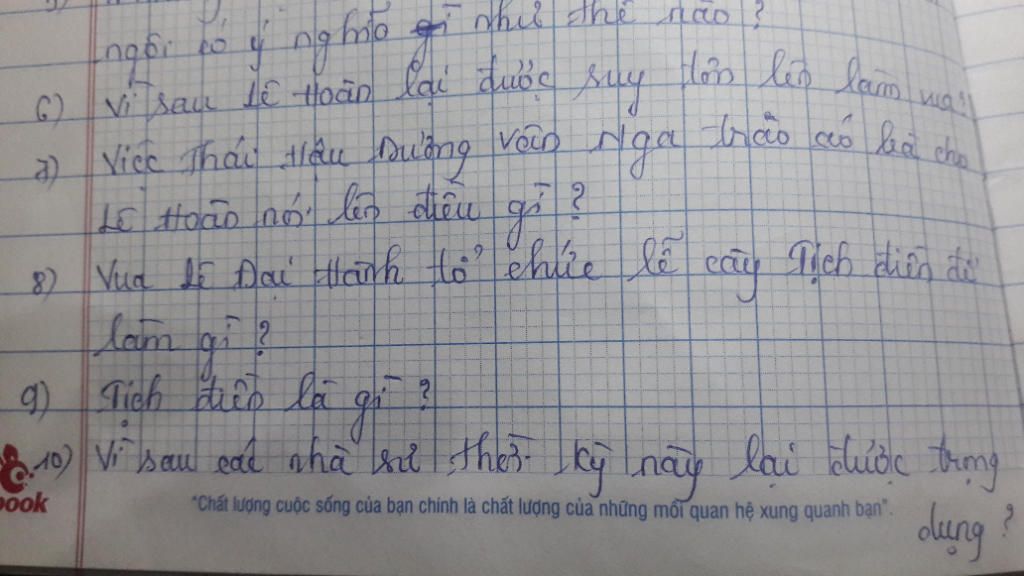 ngôi có ý nghĩa gì như thế nào?
6) Vì sau Lê Hoàn lại được suy tôn lên làm vua?
7) Việc Thái Hậu Dương Vân Nga trao áo bà cho
Lê Hoàn nói lên điều gì?
8) Vua Lê Đại Hành tổ chức lễ cày Tịch điền để
làm gì?
9) Tịch điền là gì?
10) Vì sau các nhà sư thời kỳ này lại được trọng
dụng?
book
"Chất lượng cuộc sống của bạn chính là chất lượng của những mối quan hệ xung quanh bạn".